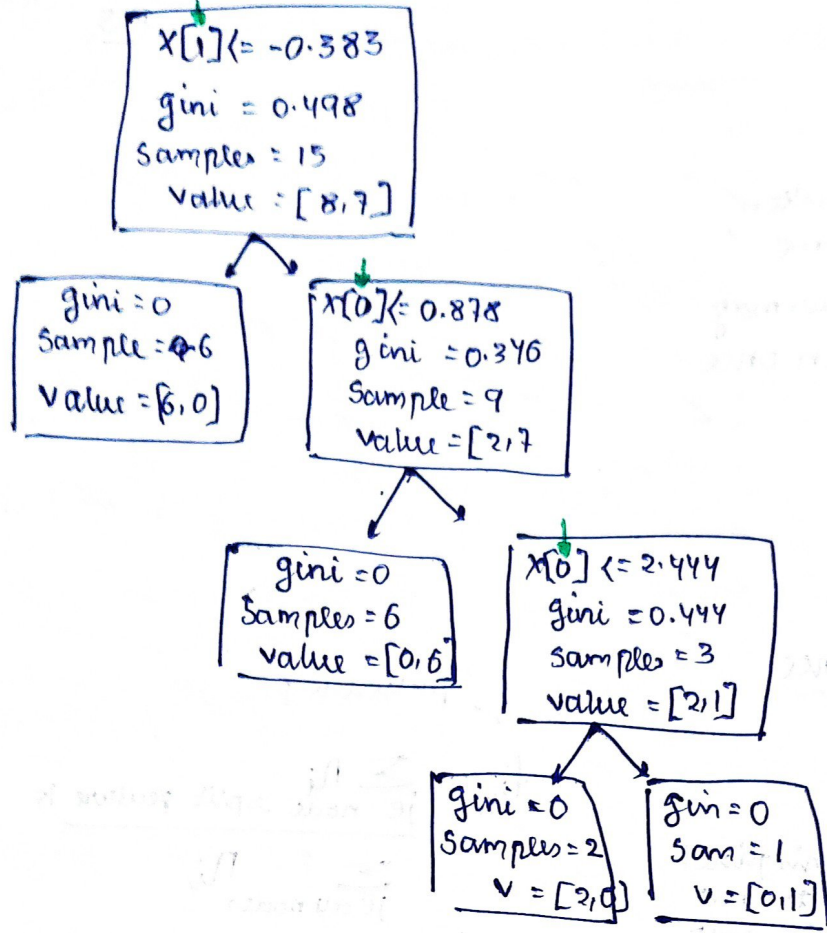 X[1]<= -0.383
gini = 0.498
Samples = 15
Value = [8,7]
gini = 0
Sample = 6
Value = [6,0]
X[0]<= 0.878
gini = 0.346
Sample = 9
Value = [2,7
gini = 0
Samples = 6
value = [0,6]
X[0] <= 2.444
gini = 0.444
samples = 3
value = [2,1]
gini = 0
Samples = 2
V = [2,0]
gin = 0
Sam = 1
V = [0,1]